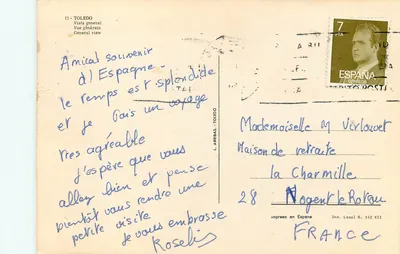 13 - TOLEDO
Vista general
Vue générale
General view
Amical souvenir
d'Espagne.
le temps est splendide
et je fais un voyage
très agréable
J'espère que vous
allez bien et pense
bientôt vous rendre une
petite visite
Je vous embrasse
Roseli
7
PTA
ESPAÑA
CORREOS
L. ARRIBAS. TOLEDO
Mademoiselle M Verlouet
Maison de retraite
la Charmille
28 Nogent le Rotrou
FRANCE
Impreso en España